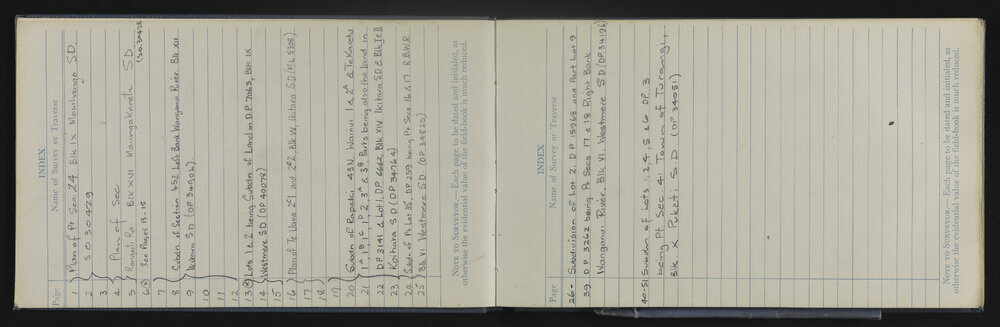 INDEX
Page
Name of Survey or Traverse
1 Plan of Pt Sec 24 Blk IX Mowhango SD.
2 S O 30429
3
4 Plan of Sec
5 Rangatapu Blk XVI Maungakaretu SD
(S.O. 30428
6 See Pages 13-15
7
8 Subdn of Section 452 Left Bank Wanganui River Blk XII
9 Ikitara S D (DP 34904)
10
11
12
13 Lots 1 & 2 being Subdn. of Land in D.P. 7063, Blk IX
14 Westmere S.D (DP 40078)
15
16 Plan of Te Uaua 2C1 and 2C2, Blk IV, Ikitara S.D. (ML 5306)
17
18
19
20 Subdn of Rapaki 43N, Wainui 1 & 2A & Te Karetu
21 1A, 1B, 1C, 1D, 2, 3A & 3B Parts being also the land in
22 DP 3141 & Lot 1, DP 6662, Blk XIV Ikitara S.D & Blk I & II
23 Koitiara S.D (DP 34764)
24 Subdn of Pt Lot 35, DP 259 being Pt Secs 16 & 17 R.B.W.R
25 Blk VI Westmere S.D (DP 34825)
NOTE TO SURVEYOR.— Each page to be dated and initialed, as
otherwise the evidential value of the field-book is much reduced.
INDEX
Page
Name of Survey or Traverse
26- Subdivision of Lot 2, D.P. 15968 and Part Lot 9
39. D.P. 3242 being Pt Secs 17 & 18 Right Bank
Wanganui River, Blk VI. Westmere S.D (DP 34196)
40-51 Subdn of Lots 1, 2, 4, 5 & 6 DP 3
being Pt Sec 41 Town of Turangi,
Blk. X Puketi S D (DP 34051)
NOTE TO SURVEYOR.— Each page to be dated and initialed, as
otherwise the evidential value of the field-book is much reduced.